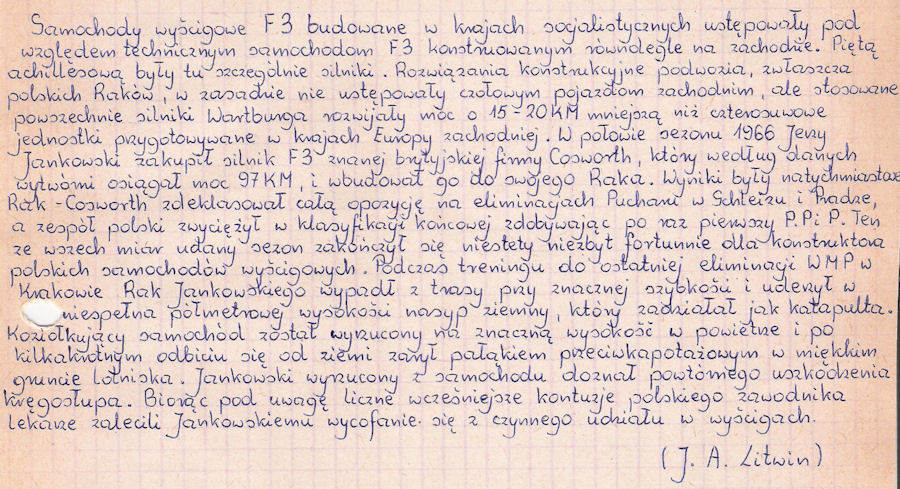 Samochody wyścigowe F3 budowane w krajach socjalistycznych ustępowały pod
względem technicznym samochodom F3 konstruowanym równolegle na zachodzie. Piętą
achillesową były tu szczególnie silniki. Rozwiązania konstrukcyjne podwozia, zwłaszcza
polskich Raków, w zasadzie nie ustępowały czołowym pojazdom zachodnim, ale stosowane
powszechnie silniki Wartburga rozwijały moc o 15-20KM mniejszą niż czterosuwowe
jednostki przygotowywane w krajach Europy zachodniej. W połowie sezonu 1966 Jerzy
Jankowski zakupił silnik F3 znanej brytyjskiej firmy Cosworth, który według danych
wytwórni osiągał moc 97KM, i wbudował go do swojego Raka. Wyniki były natychmiastowe
Rak-Cosworth zdeklasował całą opozycję na eliminacjach Pucharu w Schleizu i Pradze,
a zespół polski zwyciężył w klasyfikacji końcowej zdobywając po raz pierwszy P.P.i P. Ten
ze wszech miar udany sezon zakończył się niestety niezbyt fortunnie dla konstruktora
polskich samochodów wyścigowych. Podczas treningu do ostatniej eliminacji WMP w
Krakowie Rak Jankowskiego wypadł z trasy przy znacznej szybkości i uderzył w
niespełna półmetrowej wysokości nasyp ziemny, który zadziałał jak katapulta.
Koziołkujący samochód został wyrzucony na znaczną wysokość w powietrze i po
kilkakrotnym odbiciu się od ziemi zarył pałąkiem przeciwkapotażowym w miękkim
gruncie lotniska. Jankowski wyrzucony z samochodu doznał powtórnego uszkodzenia
kręgosłupa. Biorąc pod uwagę liczne wcześniejsze kontuzje polskiego zawodnika
lekarze zalecili Jankowskiemu wycofanie się z czynnego udziału w wyścigach.
(J. A. Litwin)